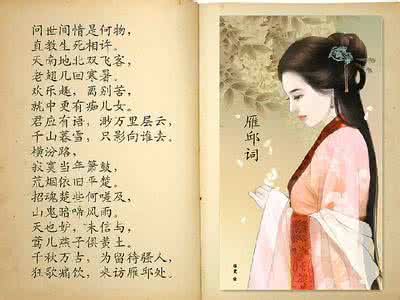 问世间情是何物，
直教生死相许。
天南地北双飞客，
老翅几回寒暑。
欢乐趣，离别苦，
就中更有痴儿女。
君应有语，渺万里层云，
千山暮雪，只影向谁去。
横汾路，
寂寞当年箫鼓，
荒烟依旧平楚。
招魂楚些何嗟及，
山鬼暗啼风雨。
天也妒，未信与，
莺儿燕子俱黄土。
千秋万古，为留待骚人，
狂歌痛饮，来访雁邱处。
雁邱词